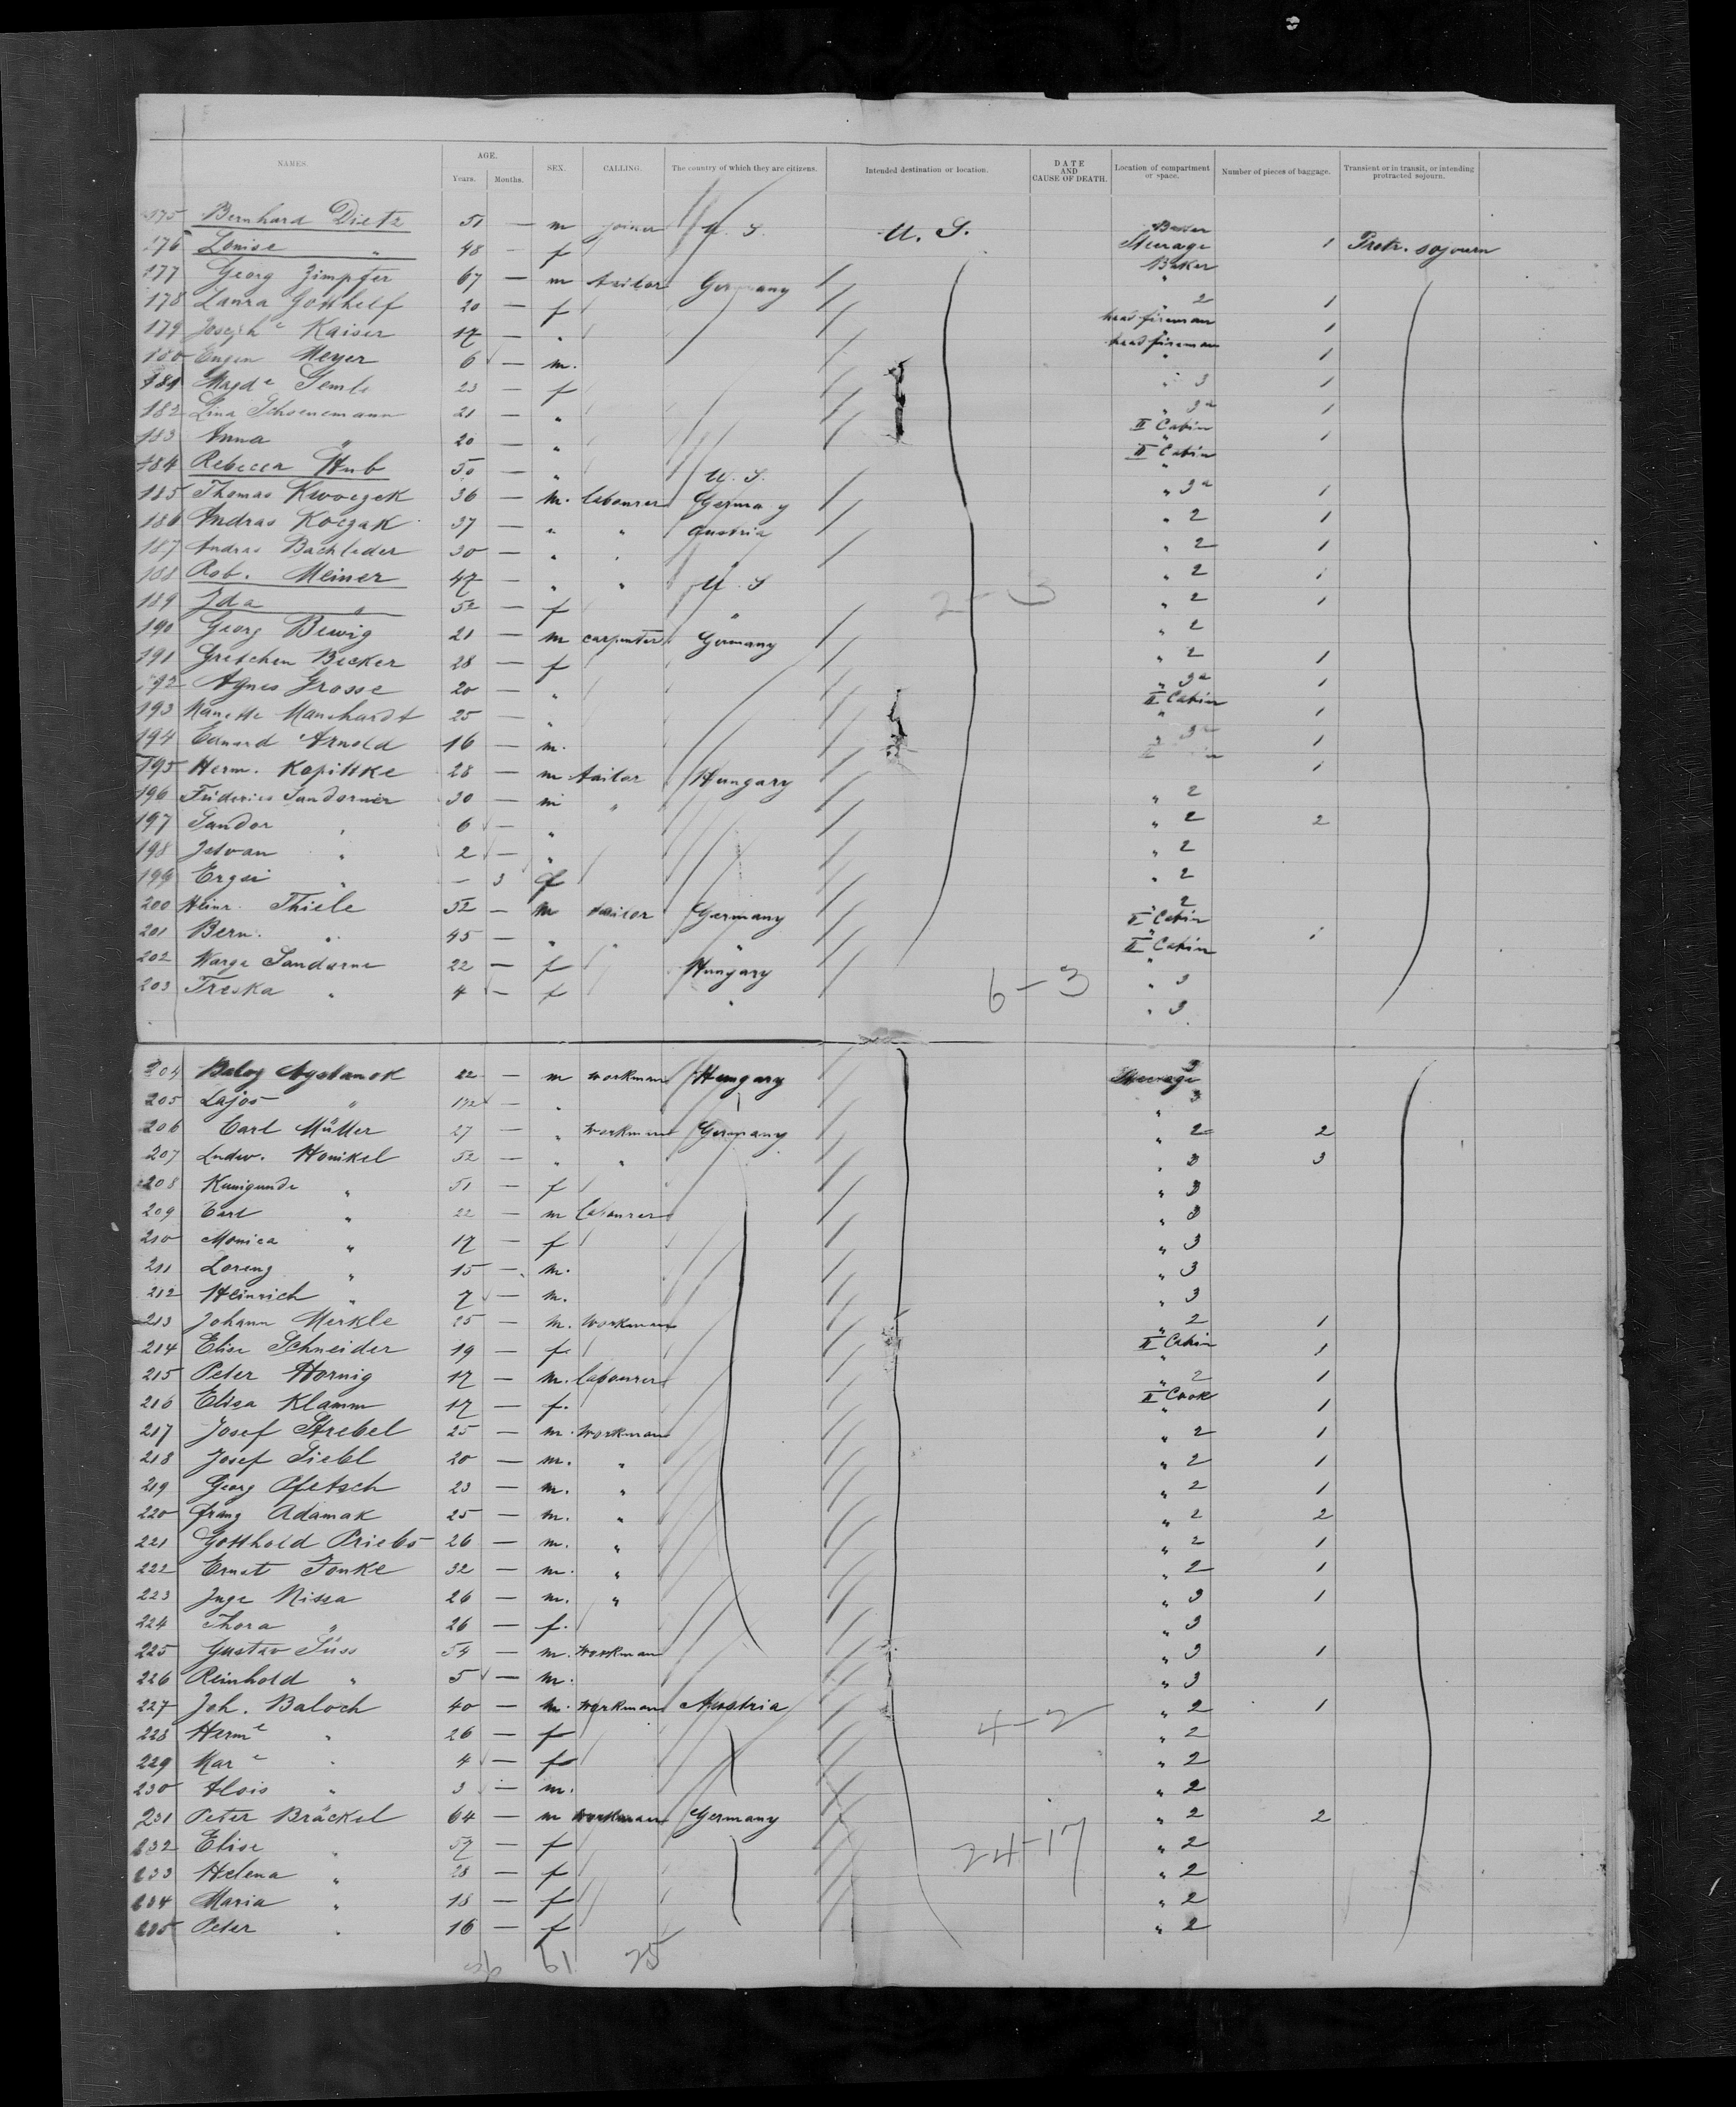 NAMES. AGE. Years. Months. SEX. CALLING. The country of which they are citizens. Intended destination or location. DATE AND CAUSE OF DEATH. Location of compartment or space. Number of pieces of baggage. Transient or in transit, or intending protracted sojourn.
175 Bernhard Dietz 51 — m joiner U. S. U. S. Baker Steerage 1 Protr. sojourn
176 Louise " 48 — f Baker "
177 Georg Zimpfer 67 — m tailor Germany " 2 1
178 Laura Gotthelf 20 — f head fireman 1
179 Joseph e Kaiser 17 — " head fireman 1
180 Eugen Meyer 6 — m.
181 Magd e 23 — f " 3 1
182 Lina Schoenemann 21 — " " 3a 1
183 Anna " 20 — " II Cabin 1
184 Rebecca Hub 50 — " U. S. II Cabin
185 Thomas Kwoczek 36 — m. labourer Germany " 3a 1
186 Andras Koczak 37 — " " Austria " 2 1
187 Andras Bachleder 30 — " " " 2 1
188 Rob. Meiner 47 — " " U. S " 2 1
189 Ida " 52 — f " " 2 1
190 Georg Bewig 21 — m carpenter Germany " 2
191 Gretchen Becker 28 — f " 2 1
192 Agnes Grosse 20 — " " 3a 1
193 Nanette Manchardt 25 — " II Cabin 1
194 Eduard Arnold 16 — m. 1
195 Herm. Kopittke 28 — m tailor Hungary 1
196 30 — m " " 2
197 Sandor " 6 — " " 2 2
198 Istvan " 2 — " " 2
199 Erzsi " — 3 f " 2
200 Heinr. Thiele 52 — m tailor Germany " 2
201 Bern. " 45 — " " " II Cabin 1
202 Warga Sandorne 22 — f Hungary II Cabin
203 Treska " 4 — f " " 3
2-3
6-3
204 Balog 22 — m workman Hungary Steerage 3
205 Lajos " — " " 3
206 Carl Müller 27 — " workman Germany " 2 2
207 Ludw. Honikel 52 — " " " 3 3
208 Kunigunde " 51 — f " 3
209 Carl " 22 — m labourer " 3
210 Monica " 17 — f " 3
211 Lorenz " 15 — m. " 3
212 Heinrich " 7 — m. " 3
213 Johann Merkle 25 — m. workman " 2 1
214 Elise Schneider 19 — f. II Cabin 1
215 Peter Hornig 17 — m. labourer " 2 1
216 Elisa Klamm 17 — f. II Cook 1
217 Josef Strebel 25 — m. workman " 2 1
218 Josef Siebl 20 — m. " " 2 1
219 Georg Pfetsch 23 — m. " " 2 1
220 Franz Adamak 25 — m. " " 2 2
221 Gotthold Priebs 26 — m. " " 2 1
222 Ernst Jonke 32 — m. " " 2 1
223 Inge Nissa 26 — m. " " 3 1
224 Thora " 26 — f. " 3
225 Gustav Süss 54 — m. workman " 3 1
226 Reinhold " 5 — m. " 3
227 Joh. Baloch 40 — m. workman Austria " 2 1
228 Herm e " 26 — f " 2
229 Mar e " 4 — f " 2
230 Alois " 3 — m. " 2
231 Peter Bräckel 64 — m workman Germany " 2 2
232 Elise " 57 — f " 2
233 Helena " 28 — f " 2
234 Maria " 18 — f " 2
235 Peter " 16 — f " 2
4-2
24-17
61 25